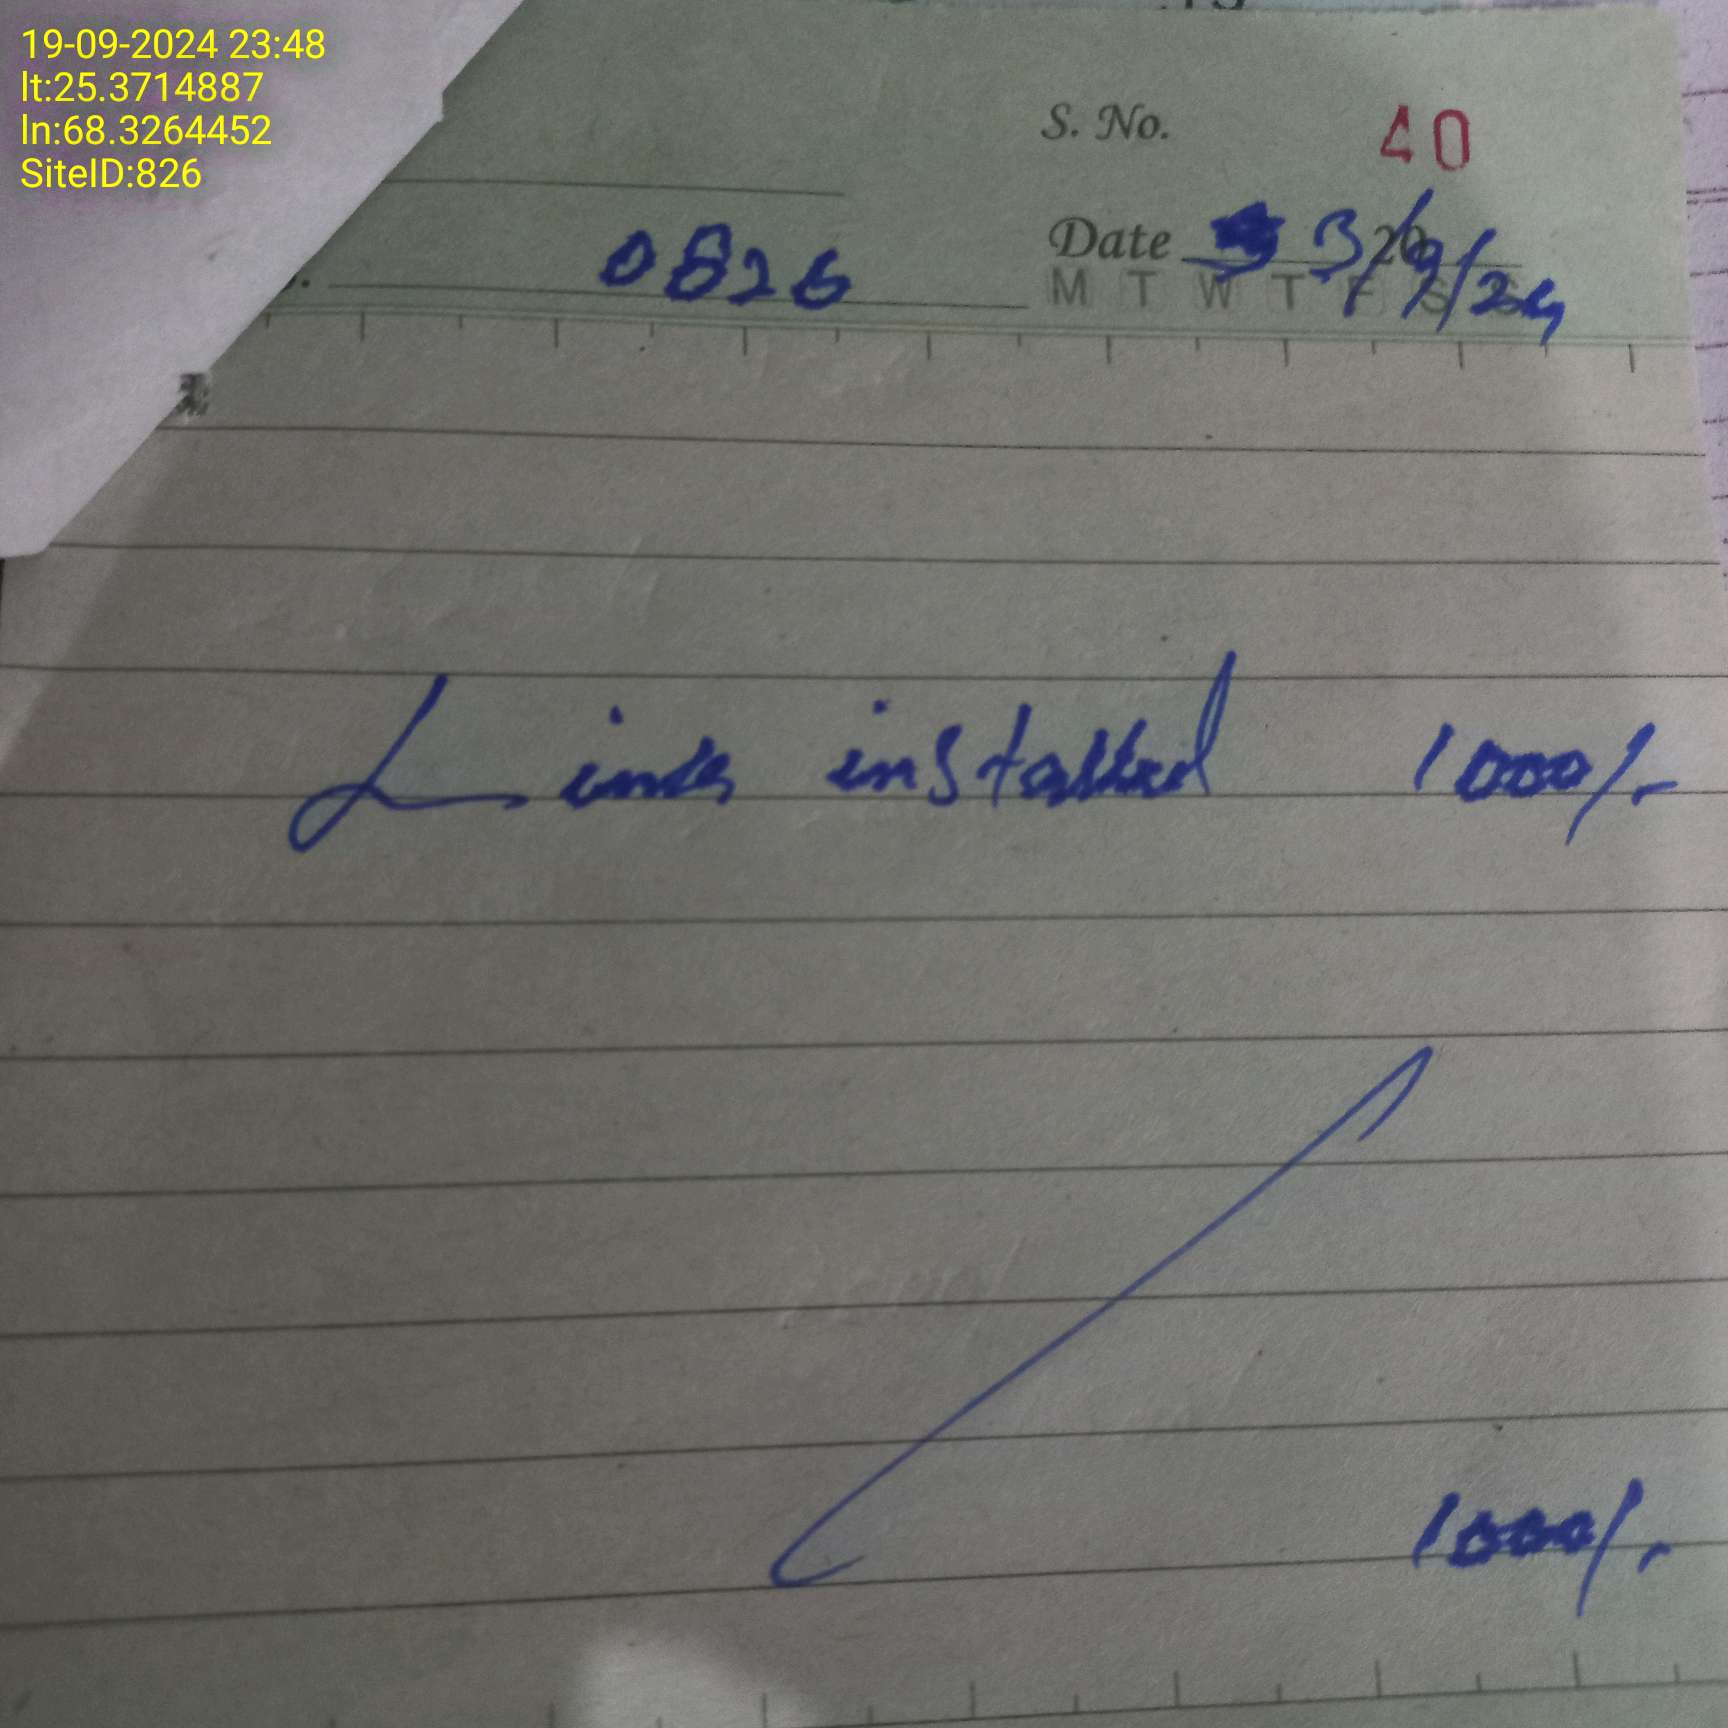 19-09-2024 23:48
lt:25.3714887
ln:68.3264452
SiteID:826
S. No. 40
Date 3/9/24 20
0826
M T W T F S S
Links installed 1000/-
1000/-